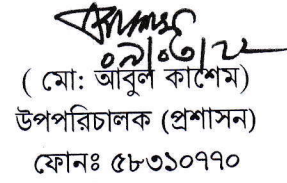 ( মো: আবুল কাশেম)
উপপরিচালক (প্রশাসন)
ফোনঃ ৫৮৩১০৭৭০